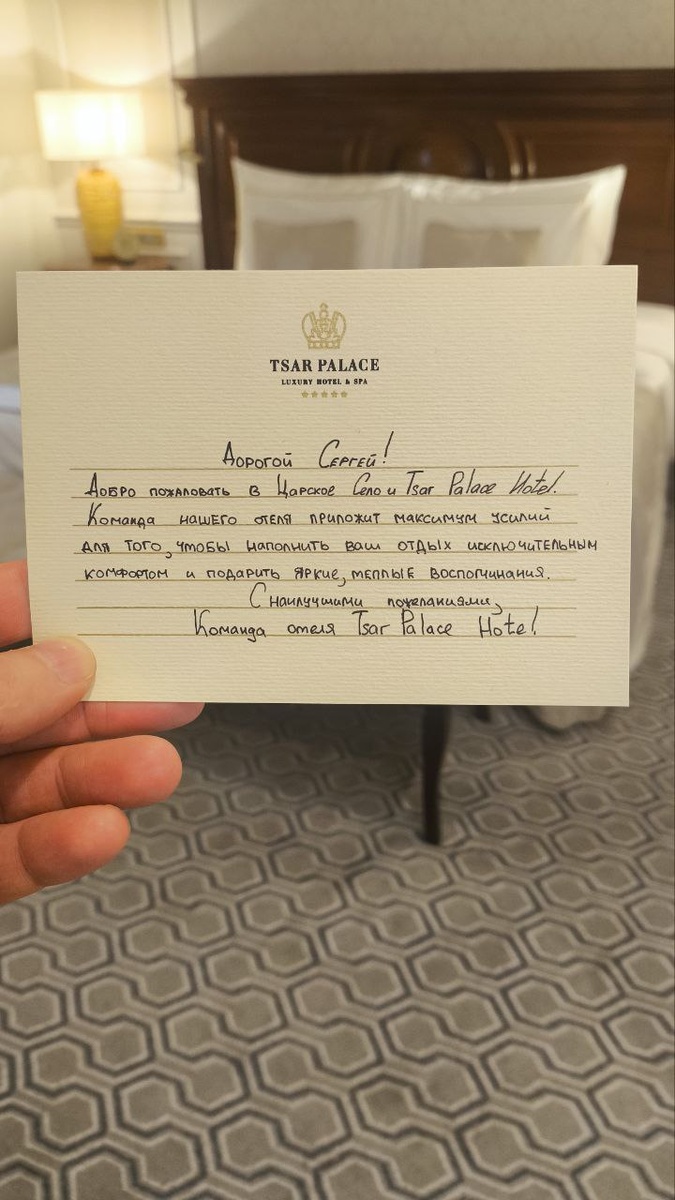 TSAR PALACE
LUXURY HOTEL & SPA
Дорогой Сергей!
Добро пожаловать в Царское Село и Tsar Palace Hotel.
Команда нашего отеля приложит максимум усилий
для того, чтобы наполнить ваш отдых исключительным
комфортом и подарить яркие, теплые воспоминания.
С наилучшими пожеланиями,
Команда отеля Tsar Palace Hotel